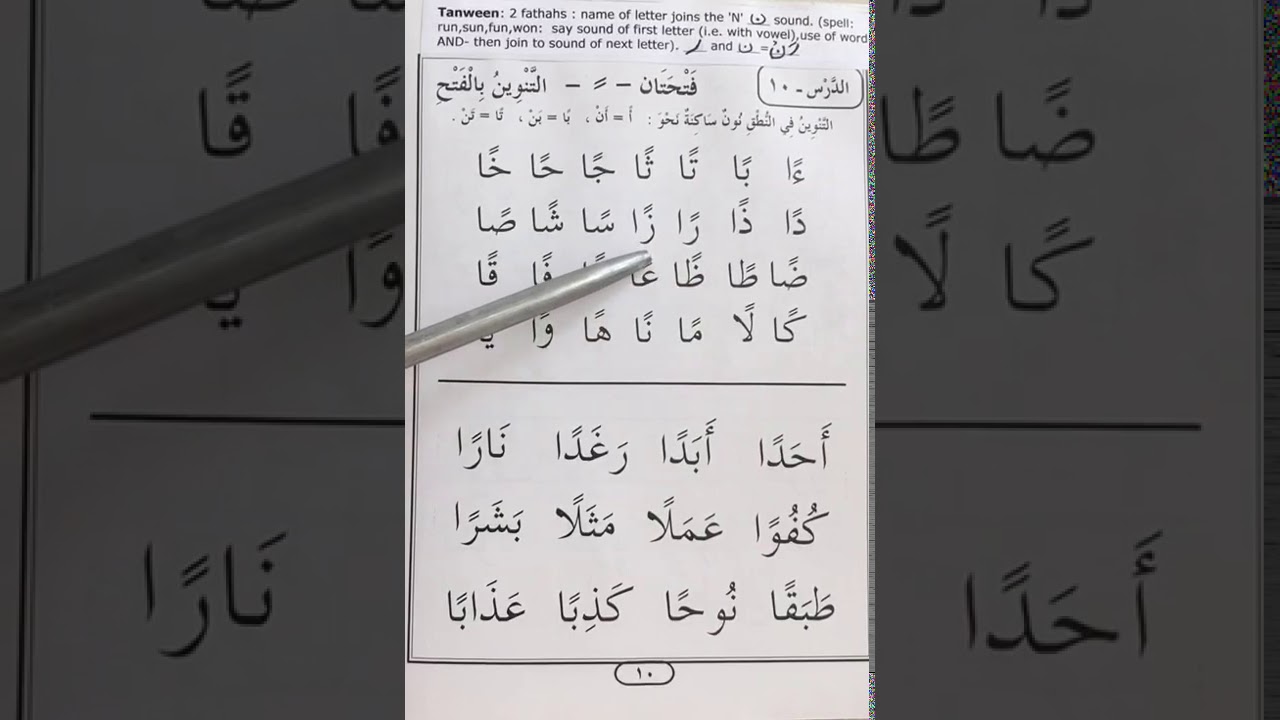 Tanween: 2 fathahs : name of letter joins the 'N' ن sound. (spell:
run,sun,fun,won: say sound of first letter (i.e. with vowel),use of word
AND- then join to sound of next letter). and ن =
الدَّرْس - ١٠ فَتْحَتَان - ــً - التَّنْوِينُ بِالْفَتْحِ
التَّنْوِينُ فِي النُّطْقِ نُونٌ سَاكِنَةٌ نَحْوَ : أً = أَنْ ، بًا = بَنْ ، تًا = تَنْ .
ءًا بًا تًا ثًا جًا حًا خًا
دًا ذًا رًا زًا سًا شًا صًا
ضًا طًا ظًا عًا فًا قًا
كًا لًا مًا نًا هًا وًا يًا
أَحَدًا أَبَدًا رَغَدًا نَارًا
كُفُوًا عَمَلًا مَثَلًا بَشَرًا
طَبَقًا نُوحًا كَذِبًا عَذَابًا
١٠